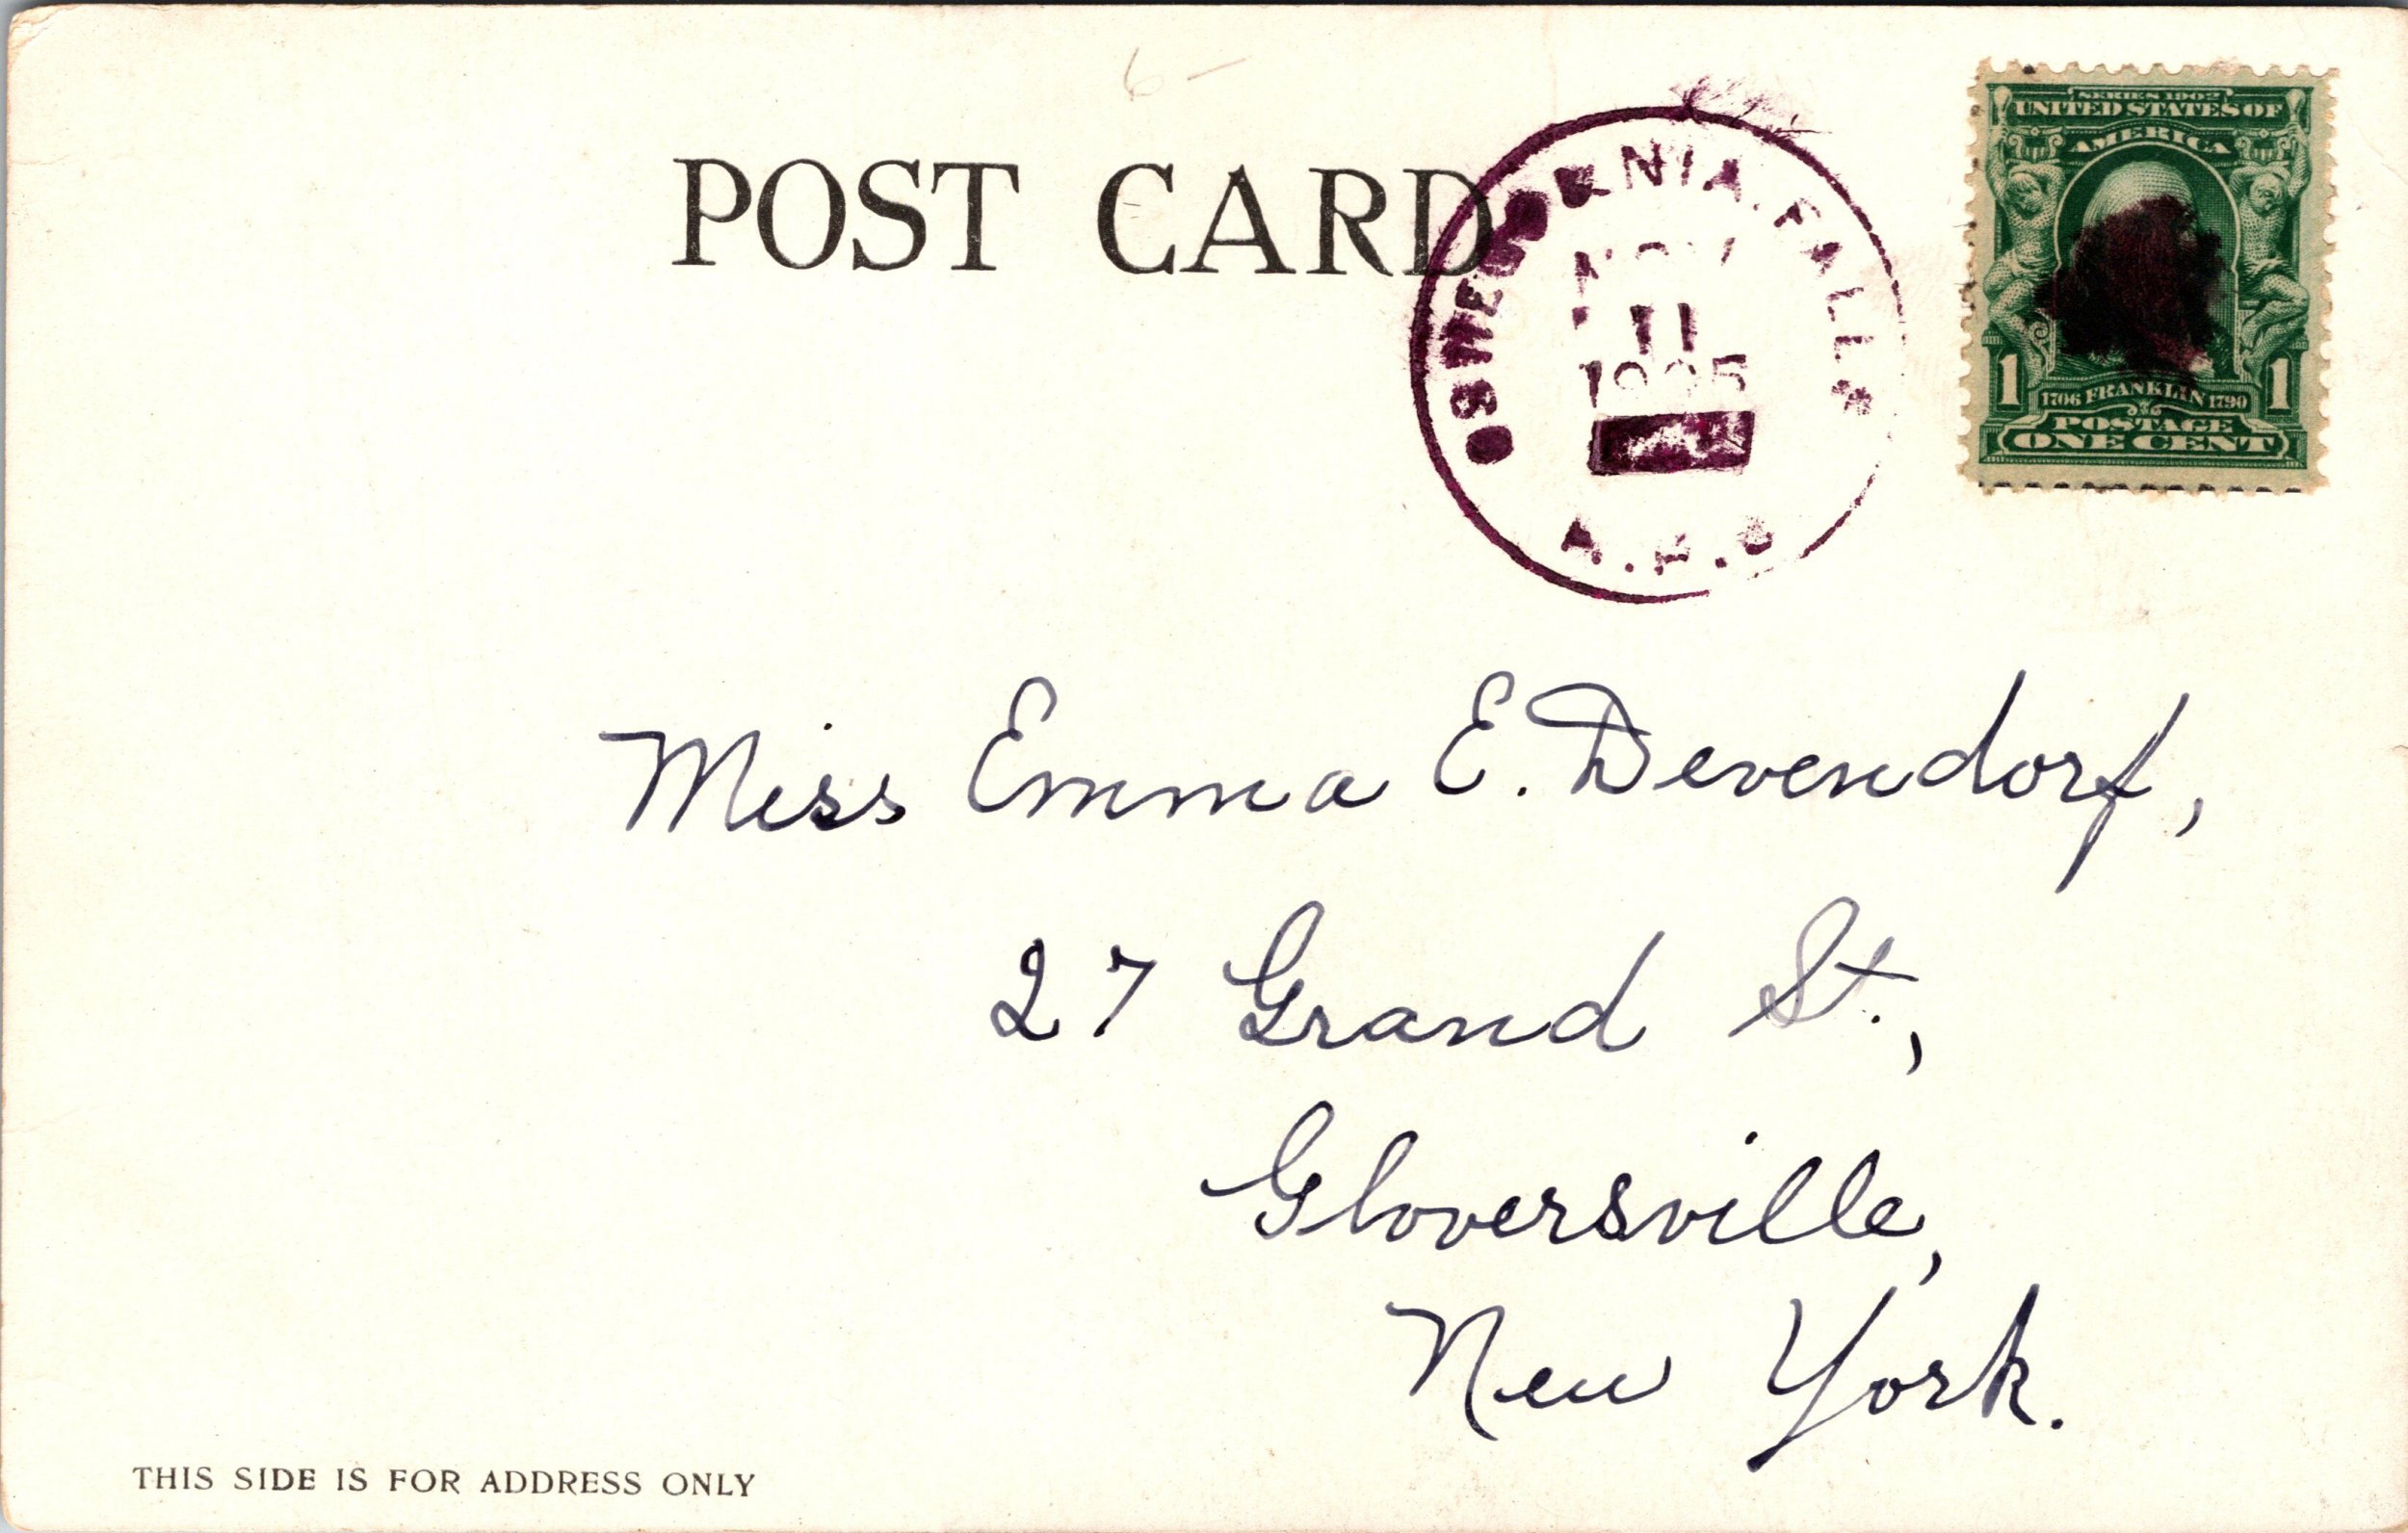 6 –
POST CARD
NIA. FALL
NOV
11
1905
SERIES 1902
UNITED STATES OF
AMERICA
1 1706 FRANKLIN 1790 1
POSTAGE
ONE CENT
Miss Emma E. Devendorf,
27 Grand St.,
Gloversville,
New York.
THIS SIDE IS FOR ADDRESS ONLY